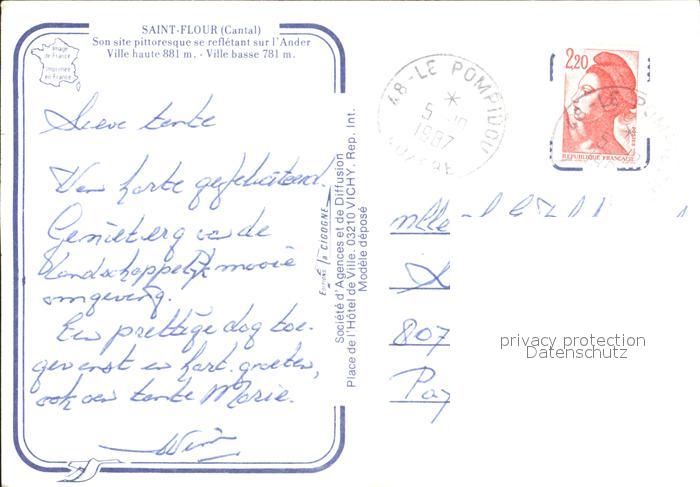 SAINT-FLOUR (Cantal)
Son site pittoresque se reflétant sur l'Ander
Ville haute 881 m. - Ville basse 781 m.
Image
de France
Imprimée
en France
Lieve tante
Van harte gefeliciteerd.
Geniet erg van de
landschappelijk mooie
omgeving.
Een prettige dag toe-
gewenst en hart. groeten,
ook van tante Marie.
Wim
Editions "la CIGOGNE"
Société d'Agences et de Diffusion
Place de l'Hôtel de Ville. 03210 VICHY - Rep. Int.
Modèle déposé
48-LE POMPIDOU
1987
LOZERE
2,20
REPUBLIQUE FRANÇAISE
Mlle
807
Pay
privacy protection
Datenschutz